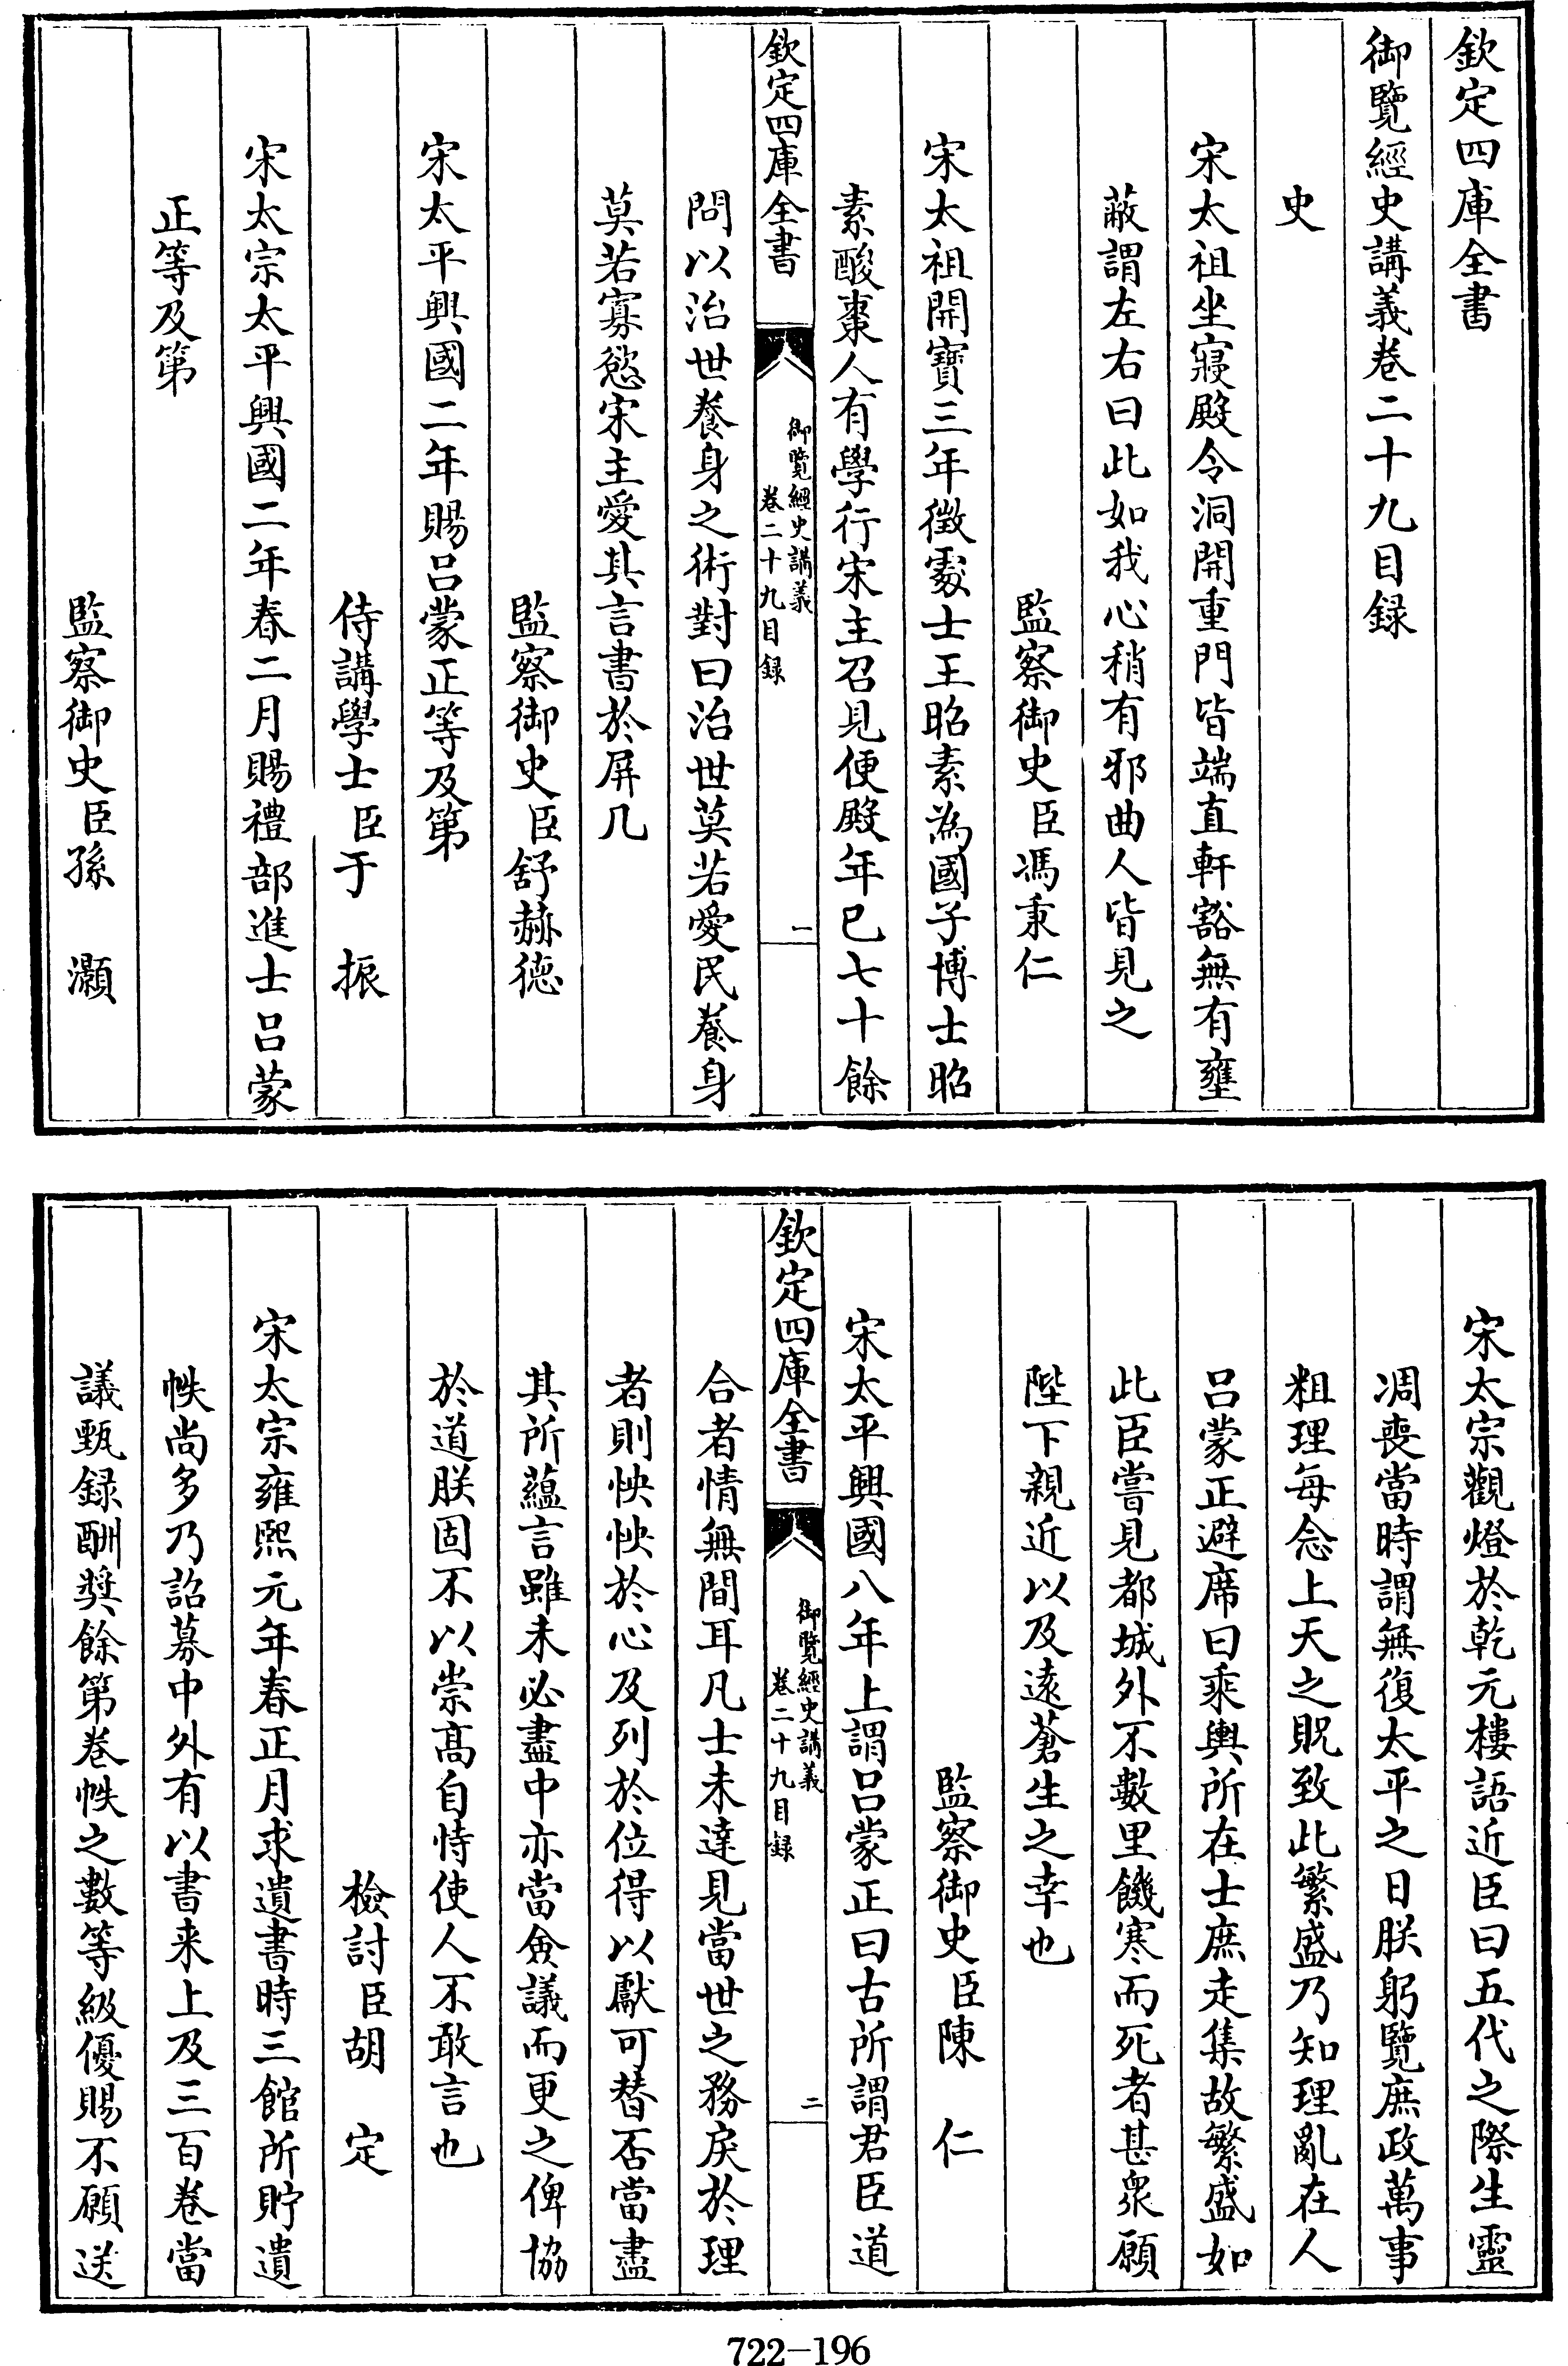 欽定四庫全書
御覽經史講義卷二十九目録
史
宋太祖坐寢殿令洞開重門皆端直軒豁無有壅
蔽謂左右曰此如我心稍有邪曲人皆見之
監察御史臣馮秉仁
宋太祖開寶三年徵處士王昭素為國子博士昭
素酸棗人有學行宋主召見便殿年已七十餘
欽定四庫全書
御覽經史講義
卷二十九目録
一
問以治世養身之術對曰治世莫若愛民養身
莫若寡慾宋主愛其言書於屏几
監察御史臣舒赫德
宋太平興國二年賜呂蒙正等及第
侍講學士臣于 振
宋太宗太平興國二年春二月賜禮部進士呂蒙
正等及第
監察御史臣孫 灝
宋太宗觀燈於乾元樓語近臣曰五代之際生靈
凋喪當時謂無復太平之日朕躬覽庶政萬事
粗理每念上天之貺致此繁盛乃知理亂在人
呂蒙正避席曰乘輿所在士庶走集故繁盛如
此臣嘗見都城外不數里饑寒而死者甚衆願
陛下親近以及遠蒼生之幸也
監察御史臣陳 仁
宋太平興國八年上謂呂蒙正曰古所謂君臣道
欽定四庫全書
御覽經史講義
卷二十九目録
二
合者情無間耳凡士未達見當世之務戾於理
者則怏怏於心及列於位得以獻可替否當盡
其所蘊言雖未必盡中亦當僉議而更之俾協
於道朕固不以崇髙自恃使人不敢言也
檢討臣胡 定
宋太宗雍熙元年春正月求遺書時三館所貯遺
帙尚多乃詔募中外有以書来上及三百卷當
議甄録酬奬餘第卷帙之數等級優賜不願送
722-196